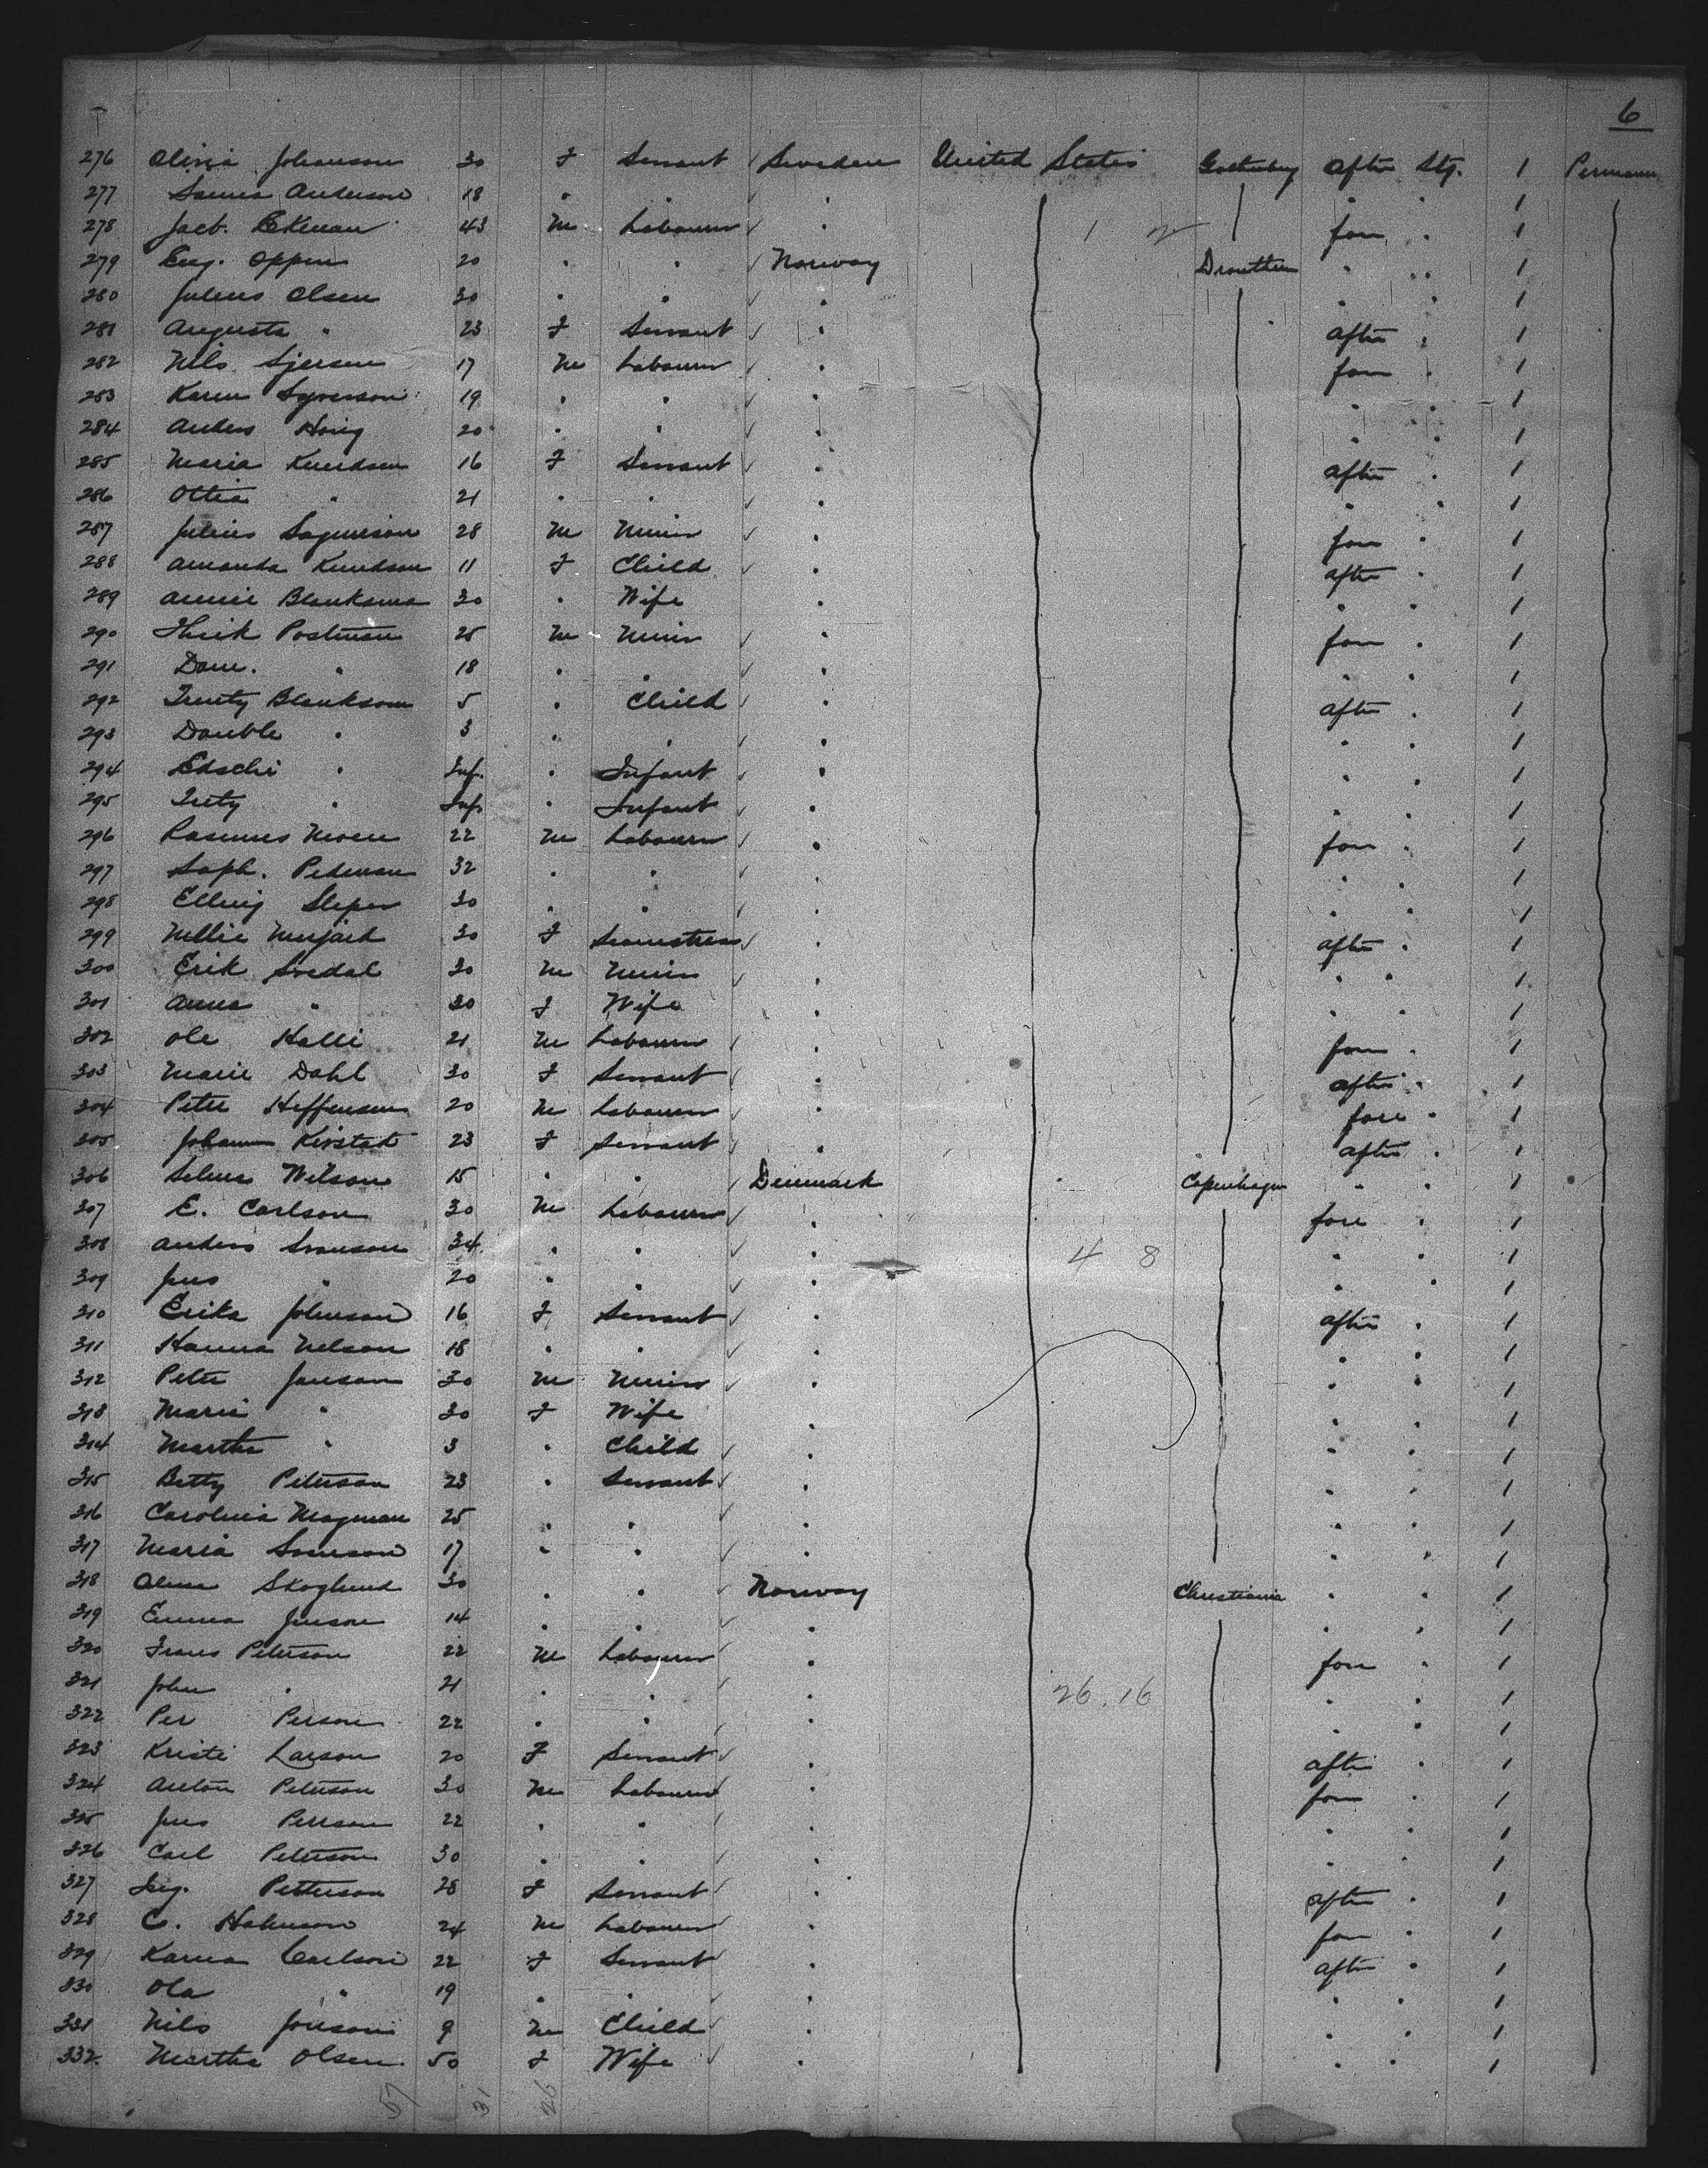 6
276 Olivia Johanson 30 F Servant Sweden United States Gothenburg After Stg. 1 Perman
277 Anderson 18 " " " " " 1
278 Jacb. Ekman 43 M Labourer " fore " 1
1 2
279 Eug. Oppen 20 " " Norway Dronthem " " 1
280 Julius Olsen 30 " " " " " 1
281 Augusta " 23 F Servant " After " 1
282 Nils 17 M Labourer " fore " 1
283 Karen 19 " " " " " 1
284 Anders 20 " " " " " 1
285 Maria Knudsen 16 F Servant " after " 1
286 Ottia " 21 " " " " " 1
287 Julius 28 M Miner " fore " 1
288 Amanda Knudson 11 F Child " after " 1
289 Annie 30 " Wife " " " 1
290 25 M Miner " fore " 1
291 " 18 " " " " " 1
292 Blankson 5 " Child " after " 1
293 Double " 3 " " " " " 1
294 " Inf. " Infant " " " 1
295 " Inf. " Infant " " " 1
296 Rasmus 22 M Labourer " fore " 1
297 Soph. Pederson 32 " " " " " 1
298 Elling 30 " " " " " 1
299 Nellie 30 F Seamstress " after " 1
300 Erik Svedal 30 M Miner " " " 1
301 Anna " 30 F Wife " " " 1
302 Ole Halli 21 M Labourer " fore " 1
303 Marie Dahl 30 F Servant " after " 1
304 Peter 20 M Labourer " fore " 1
305 Johann Kirstad 23 F Servant " after " 1
306 Selma Wilson 15 " " Denmark " Copenhagen " " 1
307 E. Carlson 30 M Labourer " fore " 1
308 Anders Svanson 34 " " " " " 1
4 8
309 Jens " 20 " " " " " 1
310 Erika Johnson 16 F Servant " after " 1
311 Hanna Nelson 18 " " " " " 1
312 Peter Janson 30 M Miner " " " 1
313 Maria " 30 F Wife " " " 1
314 Martha " 3 " Child " " " 1
315 Betty Peterson 23 " Servant " " " 1
316 Carolina Magman 25 " " " " " 1
317 Maria 17 " " " " " 1
318 Alma Skoglund 30 " " Norway Christiania " " 1
319 Emma Jonson 14 " " " " " 1
320 Frans Peterson 22 M Labourer " fore " 1
321 John " 21 " " " " " 1
26.16
322 Per Person 22 " " " " " 1
323 Kristi Larson 20 F Servant " after " 1
324 Anton Peterson 30 M Labourer " fore " 1
325 Jens Person 22 " " " " " 1
326 Carl Peterson 30 " " " " " 1
327 Ing. Petterson 28 F Servant " after " 1
328 C. 24 M Labourer " fore " 1
329 Karna Carlson 22 F Servant " after " 1
330 Ola " 19 " " " " " 1
331 Nils Jonson 9 M Child " " " 1
332 Martha Olsen 50 F Wife " " " 1
57 31 26